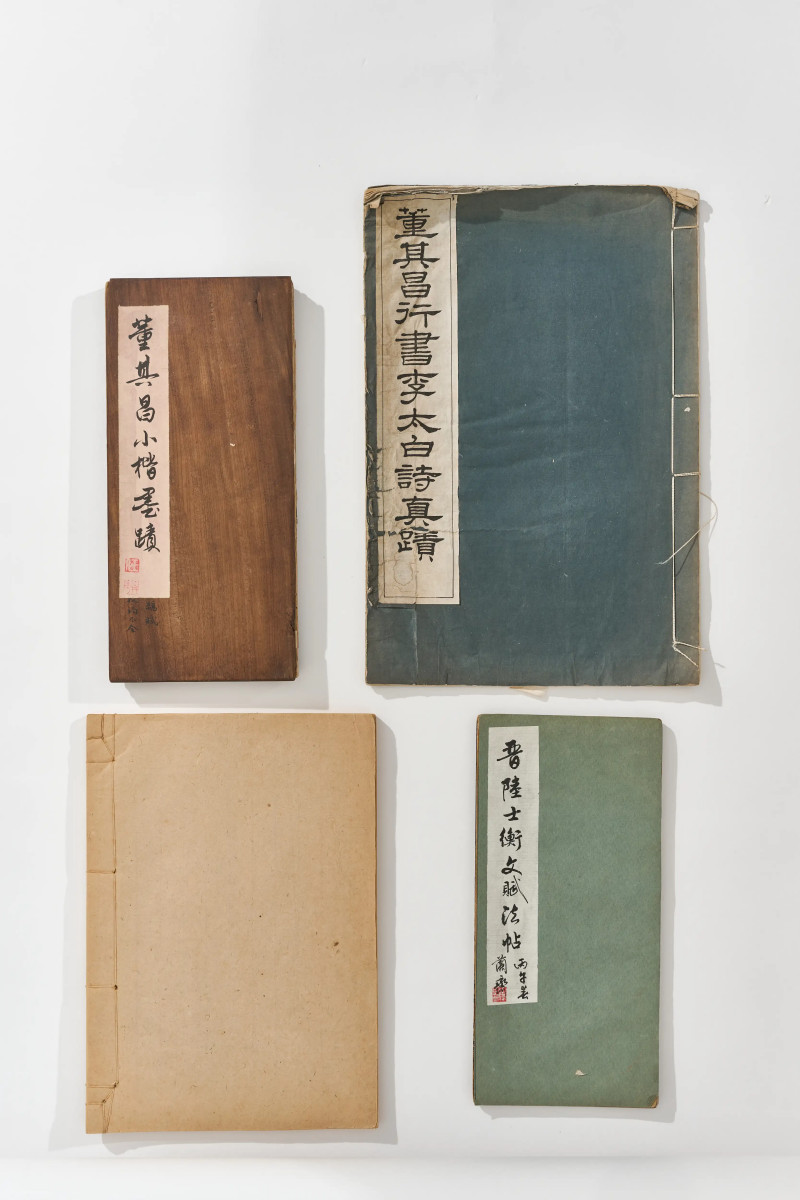 董其昌小楷墨蹟
董其昌行書李太白詩真蹟
晋陸士衡文賦法帖
丙午春
蘭齋